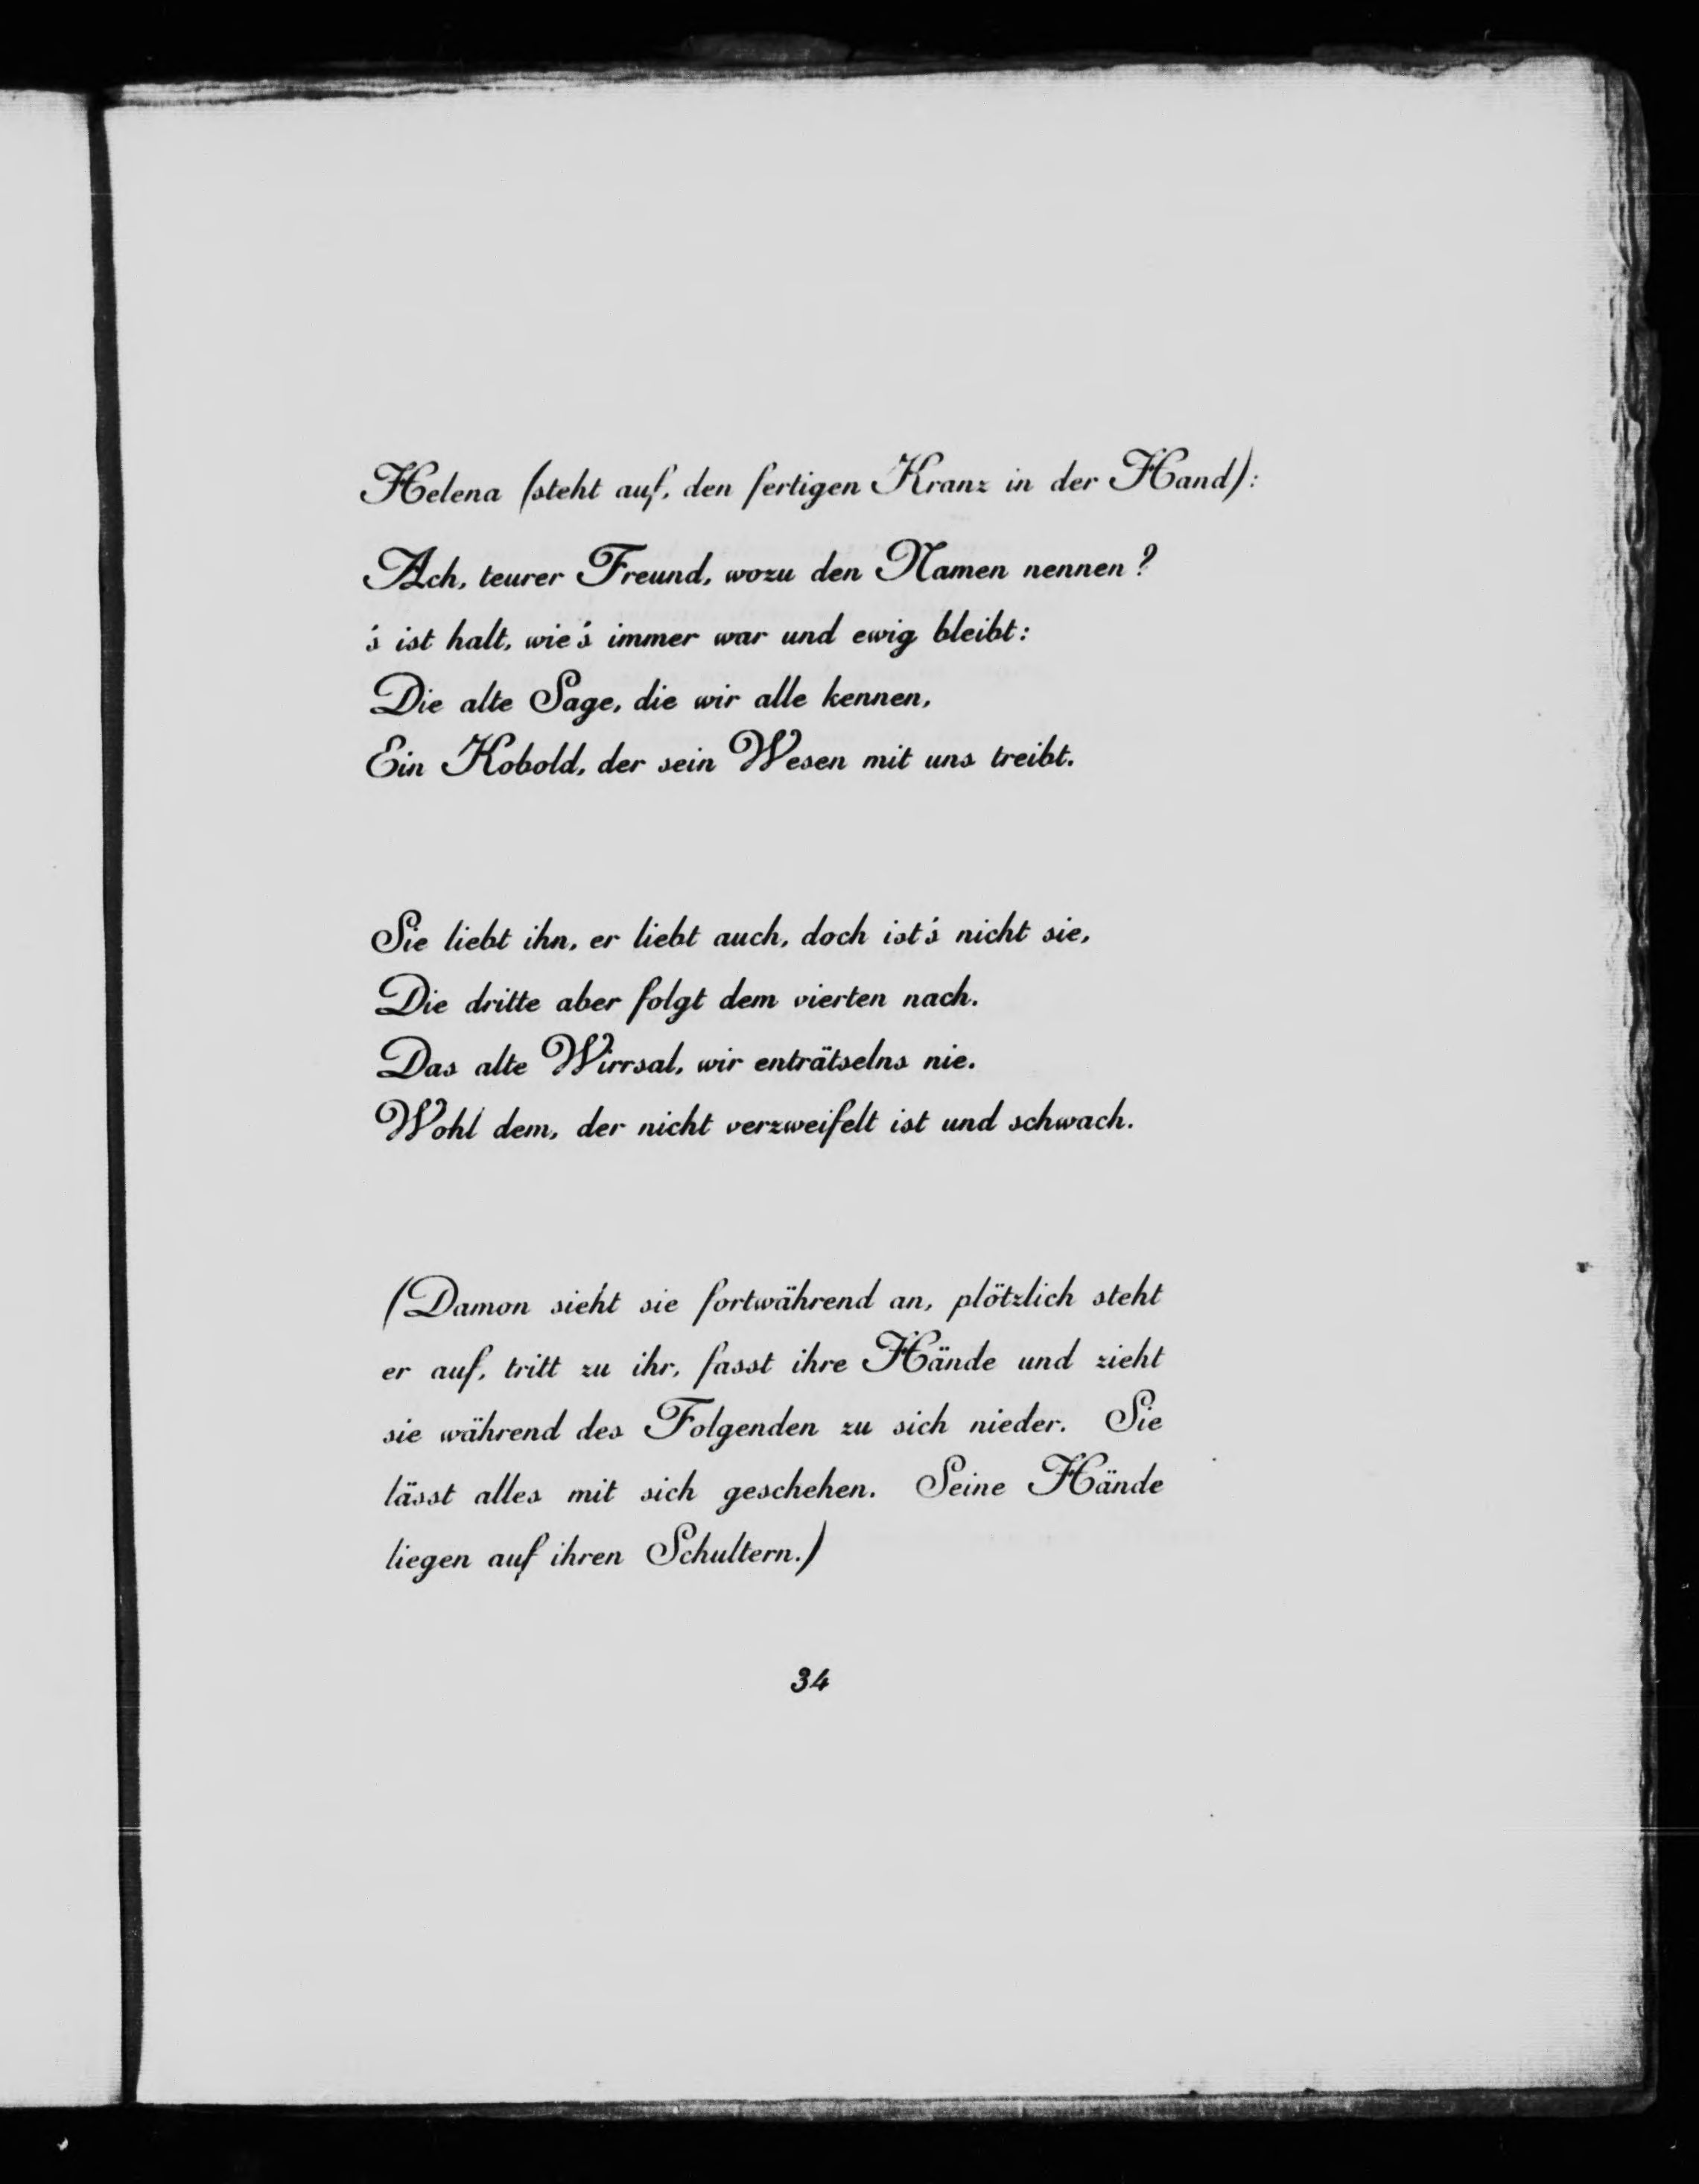 Helena (steht auf, den fertigen Kranz in der Hand):
Ach, teurer Freund, wozu den Namen nennen?
's ist halt, wie's immer war und ewig bleibt:
Die alte Sage, die wir alle kennen,
Ein Kobold, der sein Wesen mit uns treibt.
Sie liebt ihn, er liebt auch, doch ist's nicht sie,
Die dritte aber folgt dem vierten nach.
Das alte Wirrsal, wir enträtselns nie.
Wohl dem, der nicht verzweifelt ist und schwach.
(Damon sieht sie fortwährend an, plötzlich steht
er auf, tritt zu ihr, fasst ihre Hände und zieht
sie während des Folgenden zu sich nieder. Sie
lässt alles mit sich geschehen. Seine Hände
liegen auf ihren Schultern.)
34